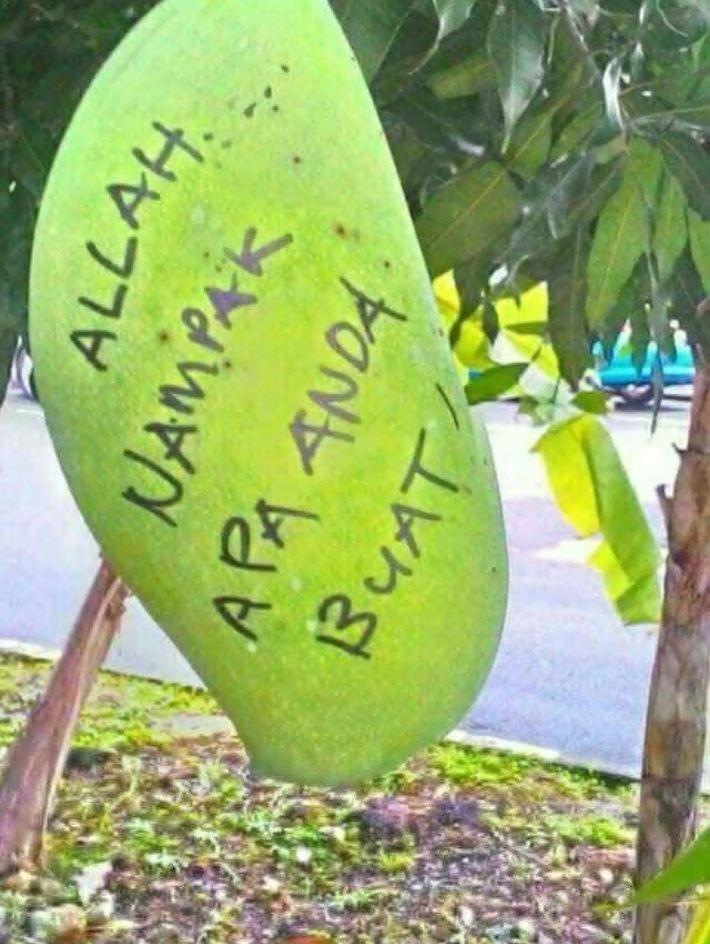 ALLAH
NAMPAK
APA ANDA
BUAT!